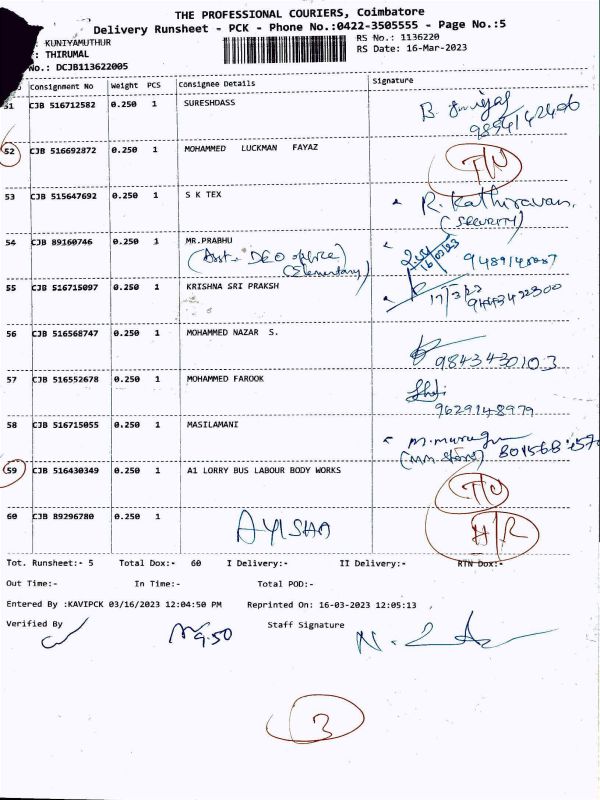 THE PROFESSIONAL COURIERS, Coimbatore
Delivery Runsheet - PCK - Phone No.:0422-3505555 - Page No.:5
: KUNIYAMUTHUR
RS No.: 1136220
: THIRUMAL
RS Date: 16-Mar-2023
No.: DCJB113622005
Consignment No Weight PCS Consignee Details Signature
51 CJB 516712582 0.250 1 SURESHDASS
52 CJB 516692872 0.250 1 MOHAMMED LUCKMAN FAYAZ
53 CJB 515647692 0.250 1 S K TEX R. Kathiravan.
(SECURITY)
54 CJB 89160746 0.250 1 MR.PRABHU
(Elementary)
16/03/23
55 CJB 516715097 0.250 1 KRISHNA SRI PRAKSH
17/3/23
56 CJB 516568747 0.250 1 MOHAMMED NAZAR S.
9843430103
57 CJB 516552678 0.250 1 MOHAMMED FAROOK
9629148979
58 CJB 516715055 0.250 1 MASILAMANI
59 CJB 516430349 0.250 1 A1 LORRY BUS LABOUR BODY WORKS
60 CJB 89296780 0.250 1 AYISHA H/R
Tot. Runsheet:- 5 Total Dox:- 60 I Delivery:- II Delivery:- RTN Dox:-
Out Time:- In Time:- Total POD:-
Entered By :KAVIPCK 03/16/2023 12:04:50 PM Reprinted On: 16-03-2023 12:05:13
Verified By Staff Signature
9.50
3